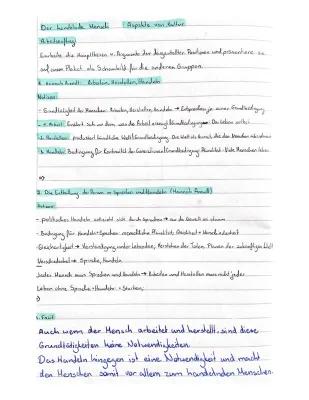 Der handelnde Mensch Aspekte von Kultur
Arbeitsauftrag
Erarbeite die Hauptthesen u. Argumente der dargestellten Positionen und präsentiere sie
auf einem Plakat als Schaubild für die anderen Gruppen.
Hannah Arendt: Arbeiten, Herstellen, Handeln
Notizen:
- Grundtätigkeit der Menschen: Arbeiten, Herstellen, Handeln → Entsprechen je einer Grundbedingung
Arbeit: Das Leben selbst
- 2. Herstellen: produziert künstliche Welt
b. Handeln: Bedingung für Kontinuität der Generationen Grundbedingung: Pluralität - Viele Menschen leben
⇒
2. Die Enthüllung der Person im Sprechen und Handeln (Hannah Arendt)
- politisches Handeln
- Bedingung für Handeln + Sprechen: menschliche Pluralität: Gleichheit + Verschiedenheit
- Gleichartigkeit → Verständigung unter Lebenden, Verstehen der Toten, Planen der zukünftigen Welt
Verschiedenheit → Sprache, Handeln
Jeder Mensch muss Sprechen und Handeln → Arbeiten und Herstellen muss nicht jeder
Leben ohne Sprache + Handeln = Sterben
Fazit
Auch wenn der Mensch arbeitet und herstellt, sind diese
Grundtätigkeiten keine Notwendigkeiten.
Das Handeln hingegen ist eine Notwendigkeit und macht
den Menschen somit vor allem zum handelnden Menschen.